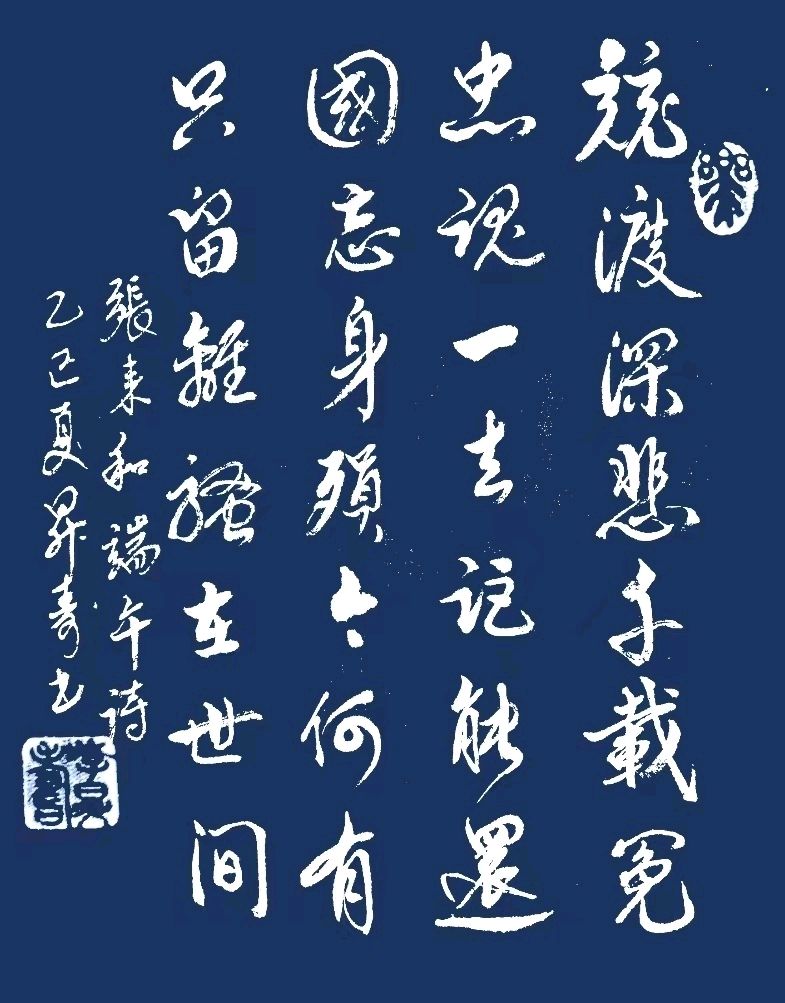 競渡深悲千載冤
忠魂一去詎能還
國忘身殞今何有
只留離騷在世間
張耒和端午詩
乙巳夏昇寿书